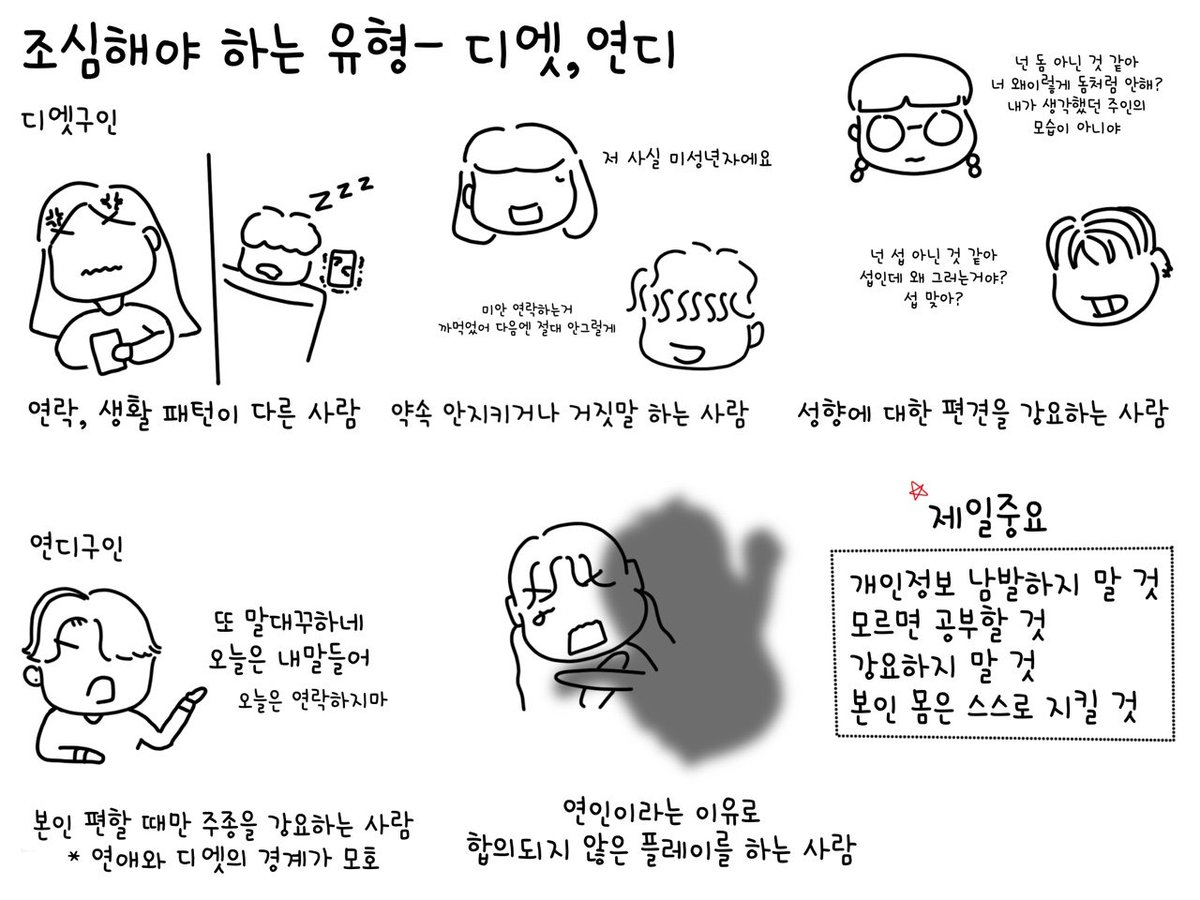 조심해야 하는 유형- 디엣,연디
디엣구인
zzz
연락, 생활 패턴이 다른 사람
저 사실 미성년자에요
미안 연락하는거
까먹었어 다음엔 절대 안그럴게
약속 안지키거나 거짓말 하는 사람
넌 돔 아닌 것 같아
너 왜이렇게 돔처럼 안해?
내가 생각했던 주인의
모습이 아니야
넌 섭 아닌 것 같아
섭인데 왜 그러는거야?
섭 맞아?
성향에 대한 편견을 강요하는 사람
연디구인
또 말대꾸하네
오늘은 내말들어
오늘은 연락하지마
본인 편할 때만 주종을 강요하는 사람
* 연애와 디엣의 경계가 모호
연인이라는 이유로
합의되지 않은 플레이를 하는 사람
제일중요
개인정보 남발하지 말 것
모르면 공부할 것
강요하지 말 것
본인 몸은 스스로 지킬 것